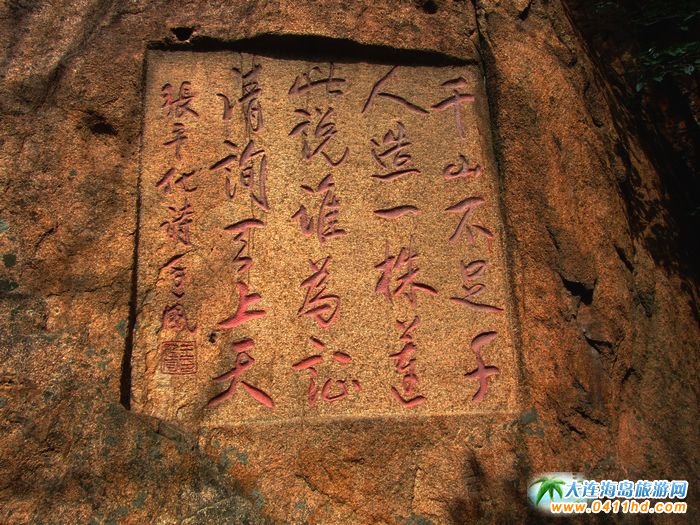 千山不足千
人造一株莲
此说谁為证
请询天上天
張平化诗
大连海岛旅游网
www.0411hd.com